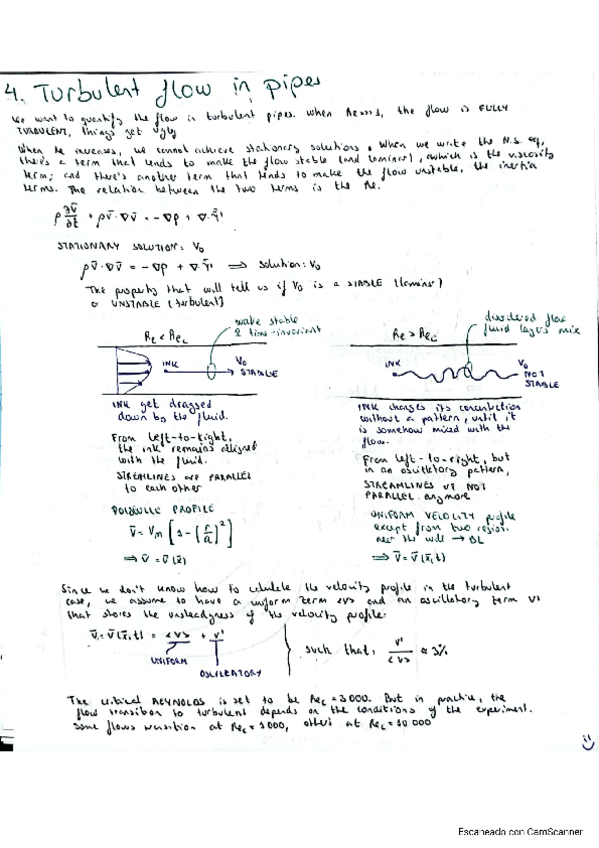 4. Turbulent flow in pipes
We want to quantify the flow in turbulent pipes. When Re>>>1, the flow is FULLY
TURBULENT, things get ugly
When Re increases, we cannot achieve stationary solutions. When we write the N.S. eq,
there's a term that tends to make the flow stable (and laminar), which is the viscosity
term; and there's another term that tends to make the flow unstable, the inertia
terms. The relation between the two terms is the Re.
ρ ∂v̄/∂t + ρv̄·∇v̄ = -∇p + ∇·τ̄'
STATIONARY SOLUTION: V₀
ρv̄·∇v̄ = -∇p + ∇·τ̄' ⟹ solution: V₀
The property that will tell us if V₀ is a STABLE (laminar)
o UNSTABLE (turbulent)
Re < Rec
make stable
& time-invariant
INK
V₀
STABLE
INK get dragged
down by the fluid.
From left-to-right,
the ink remains aligned
with the fluid.
STREAMLINES are PARALLEL
to each other
POISEUILLE PROFILE
v̄ = Vm [1 - (r/a)²]
⟹ v̄ = v̄(x̄)
Re > Rec
disordered flow
fluid layers mix
INK
V₀
NOT
STABLE
INK changes its concentration
without a pattern, until it
is somehow mixed with the
flow.
From left-to-right, but
in an oscillatory pattern,
STREAMLINES NOT
PARALLEL anymore
UNIFORM VELOCITY profile
except from two regions
near the wall → BL
⟹ v̄ = v̄(x̄,t)
Since we don't know how to calculate the velocity profile in the turbulent
case, we assume to have a uniform term <v> and an oscillatory term v'
that stores the unsteadyness of the velocity profile:
v̄ = v̄(x̄,t) = <v> + v'
UNIFORM
OSCILLATORY
such that, v'/<v> ≈ 3%
The critical REYNOLDS is set to be Rec = 3000. But in practice, the
flow transition to turbulent depends on the conditions of the experiment.
Some flows transition at Rec = 1000, others at Rec = 10 000
Escaneado con CamScanner